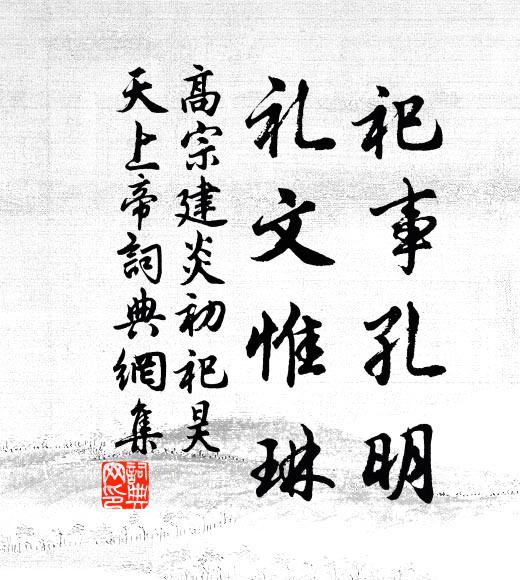 祀事孔明
礼文惟琳
高宗建炎初祀昊
天上帝詞典網集
詞典
网印